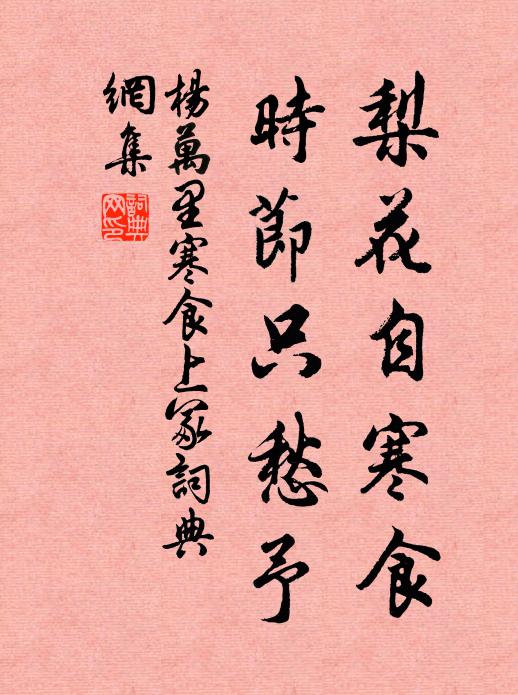 梨花自寒食
時節只愁予
楊萬里寒食上冢詞典
網集
詞典
网印